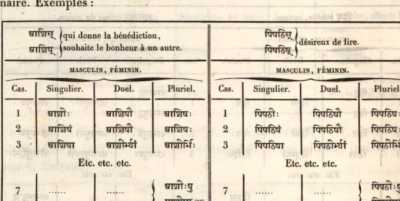 naire. Exemples :
आशिस् } qui donne la bénédiction, पिपठिस् } désireux de lire.
आशिष् } souhaite le bonheur à un autre. पिपठिष्
MASCULIN, FÉMININ. MASCULIN, FÉMININ.
Cas. Singulier. Duel. Pluriel. Cas. Singulier. Duel. Pluriel
1 आशीः आशिषौ आशिषः 1 पिपठीः पिपठिषौ पिपठिषः
2 आशिषं आशिषौ आशिषः 2 पिपठिषं पिपठिषौ पिपठिषः
3 आशिषा आशीर्भ्यां आशीर्भिः 3 पिपठिषा पिपठीर्भ्यां
Etc. etc. etc. Etc. etc. etc.
7 ...... ...... { आशीःषु 7 ...... ...... { पिपठीःषु